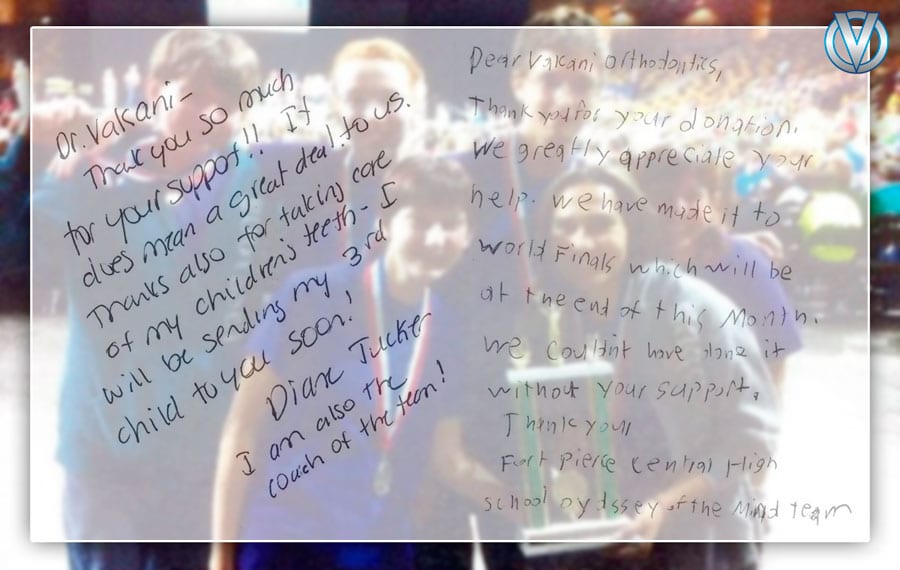 Dr. Vakani -
Thank you so much
for your support!! It
does mean a great deal to us.
Thanks also for taking care
of my children's teeth - I
will be sending my 3rd
child to you soon!
Diane Tucker
I am also the
coach of the team!
Dear Vakani Orthodontics,
Thank you for your donation.
We greatly appreciate your
help. We have made it to
World Finals which will be
at the end of this Month.
We couldn't have done it
without your support.
Thank you,
Fort Pierce Central High
school oydssey of the Mind team